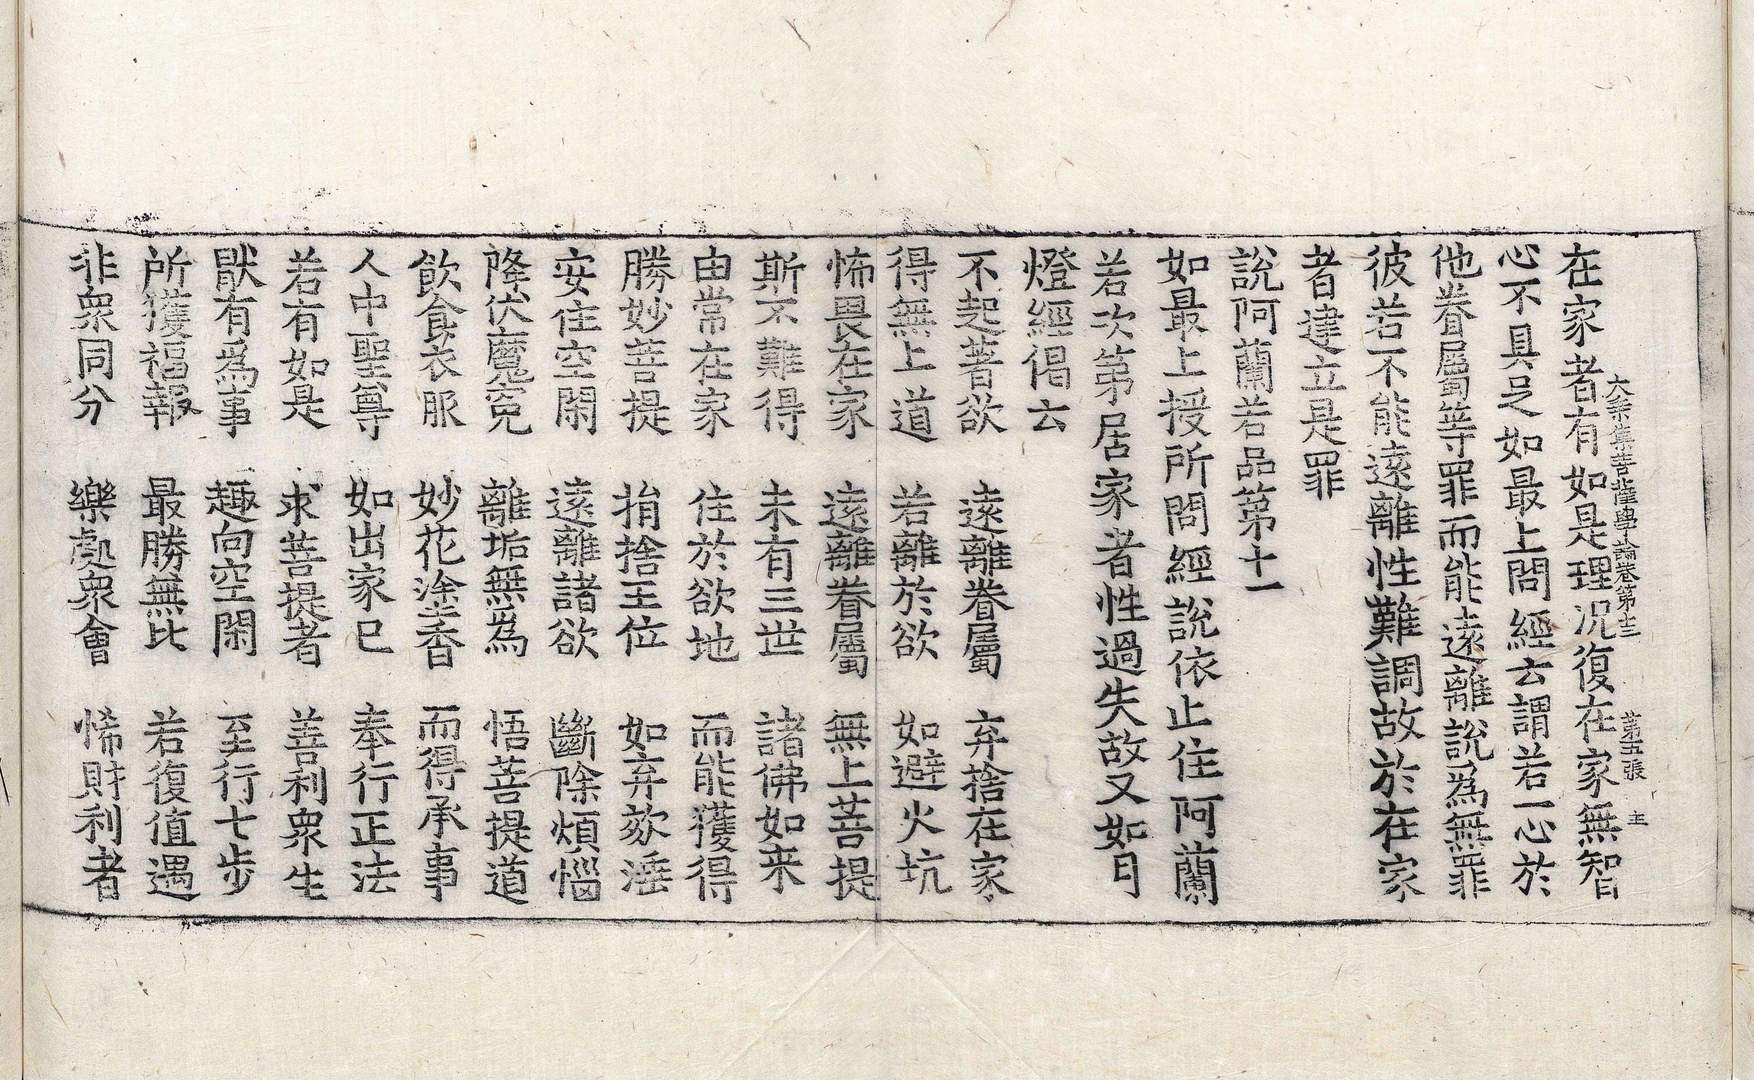 大乘集菩薩學論卷第十三　第五張　主
在家者有如是理況復在家無智
心不具足如最上問經云謂若一心於
他眷屬等罪而能遠離說為無罪
彼若不能遠離性難調故於在家
者違立是罪
說阿蘭若品第十一
如最上授所問經說依止住阿蘭
若次第居家者性過失故又如月
燈經偈云
不起著欲　遠離眷屬　弃捨在家
得無上道　若離於欲　如避火坑
怖畏在家　遠離眷屬　無上菩提
斯不難得　未有三世　諸佛如来
由常在家　住於欲地　而能獲得
勝妙菩提　捐捨王位　如弃欬唾
安住空閑　遠離諸欲　斷除煩惱
降伏魔寃　離垢無為　悟菩提道
飲食衣服　妙花塗香　而得承事
人中聖尊　如出家已　奉行正法
若有如是　求菩提者　善利衆生
猒有為事　趣向空閑　至行七步
所獲福報　最勝無比　若復值遇
非衆同分　樂處衆會　悕財利者